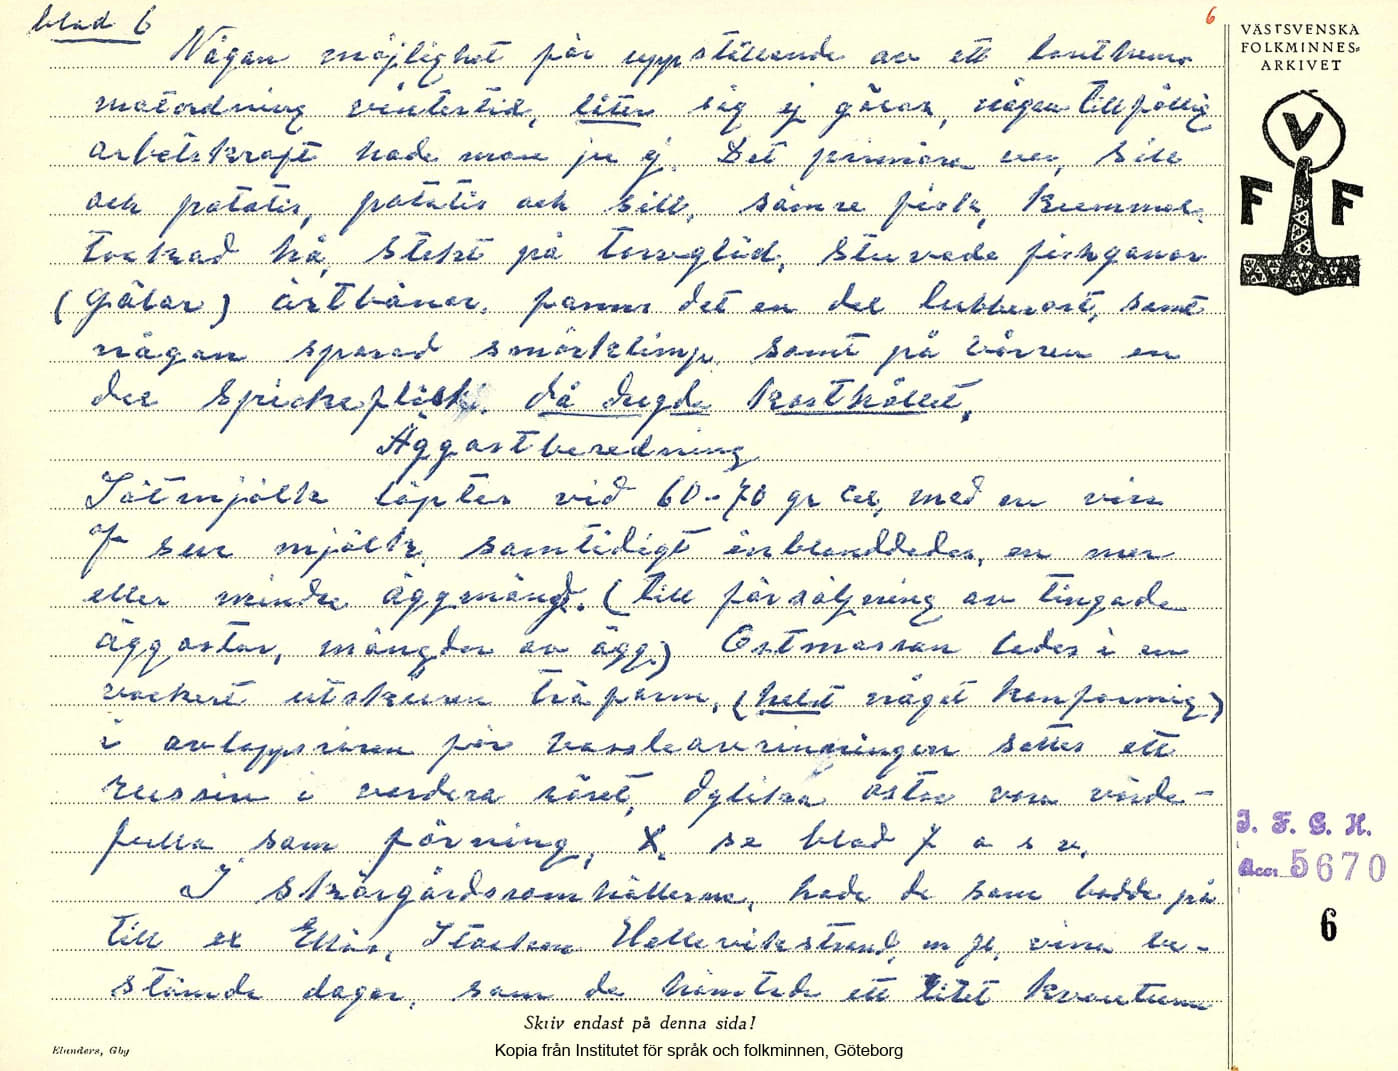 blad 6
6
Någon möjlighet för uppställande av ett lanthemo
matordning vintertid, läter sig ej göras, någon tillfällig
arbetskraft hade man ju ej. Det primära var, sill
och potatis, potatis och sill, sämre fisk, kummel
torkad hå, stekt på torvglöd, stuvade fiskganor
(Gälar) ärtbönor, fanns det en del lubberost, samt
någon sparad smörklimp, samt på våren en
del spickefläsk. då dugde kosthållet.
Äggostberedning
Sötmjölk löptes vid 60-70 gr Cel, med en viss
% sur mjölk, samtidigt inblanddedes, en mer
eller mindre äggmängd. (till försäljning av tingade
äggostar, mängder av ägg) Ostmassan lades i en
vackert utskuren träform, (helst något konformig)
i avloppsrören för vassleavrinningen sattes ett
russin i vardera röret, dylika ostar vora värde-
fulla som förning, X se blad 7 o s v.
I skärgårdssamhällerna, hade de som bodde på
till ex Ellös, Stocken Hellevikstrand, m fl, vissa be-
stämda dagar, som de hämtade ett litet kvantum
Skriv endast på denna sida!
Elanders, Gbg
Kopia från Institutet för språk och folkminnen, Göteborg
VÄSTSVENSKA
FOLKMINNES-
ARKIVET
V
F F
I. F. G. H.
Acc. 5670
6